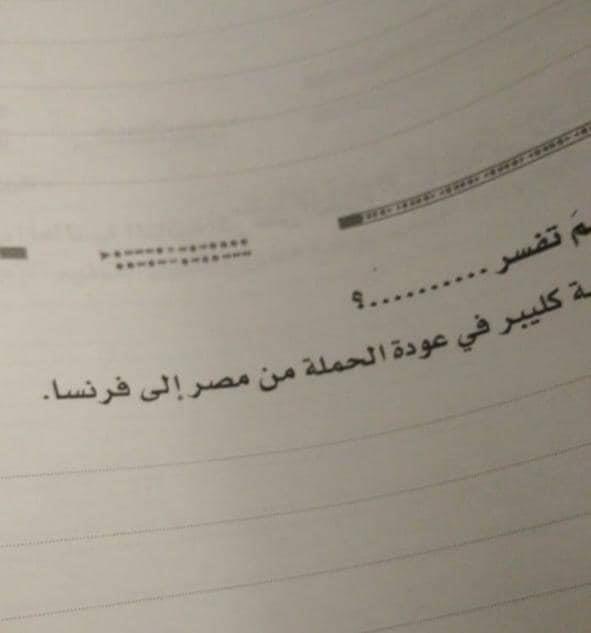 بمَ تفسر ..........؟
كليبر في عودة الحملة من مصر إلى فرنسا.